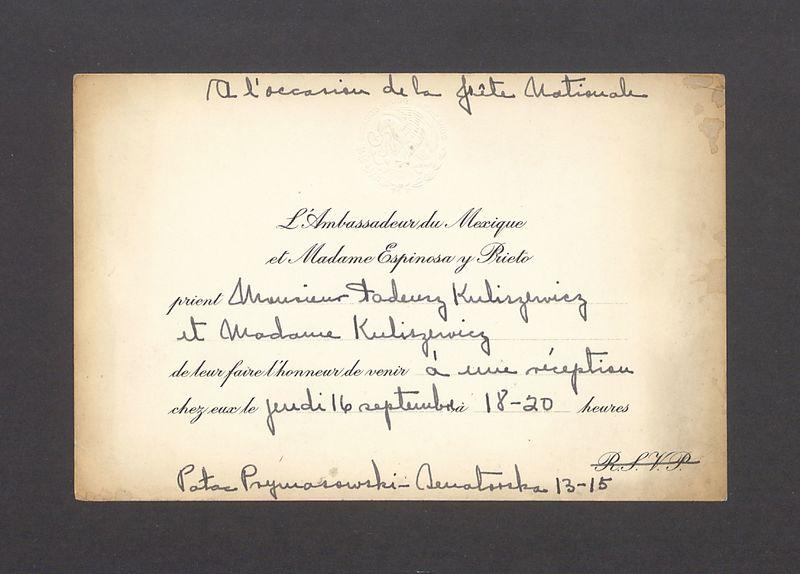 A l'occasion de la fête Nationale
L'Ambassadeur du Mexique
et Madame Espinosa y Prieto
prient Monsieur Tadeusz Kuliszewicz
et Madame Kuliszewicz
de leur faire l'honneur de venir à une réception
chez eux le jeudi 16 septembre à 18-20 heures
R.S.V.P.
Pałac Prymasowski - Senatorska 13-15